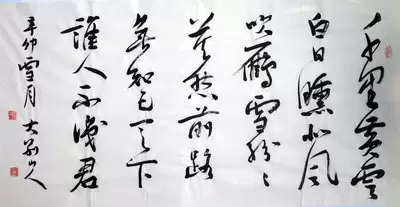 千里黃雲
白日曛北風
吹鴈雪紛〻
莫愁前路
無知己天下
誰人不識君
辛卯雪月 大別山人